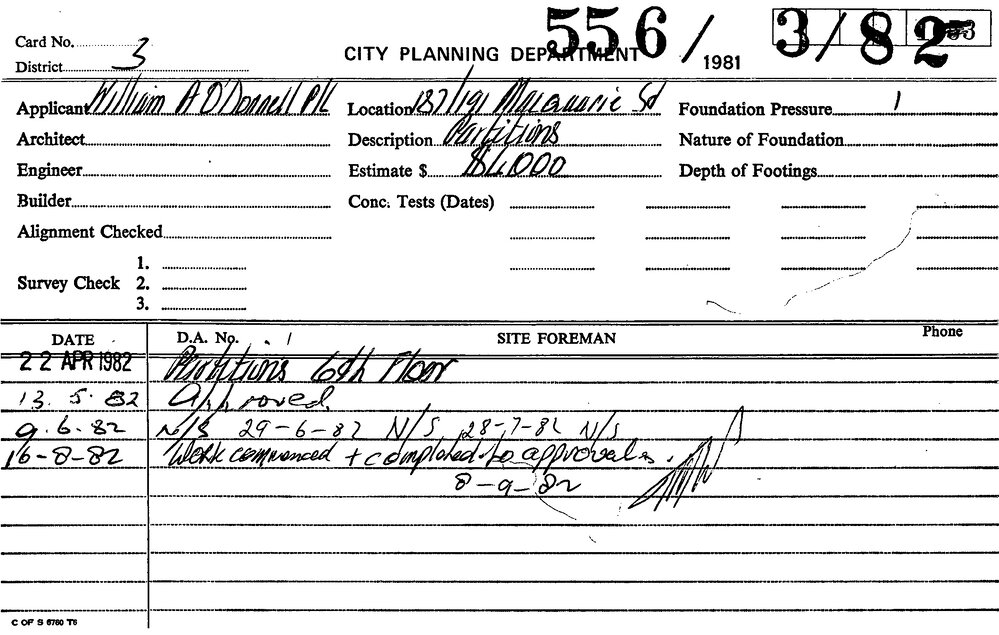 556/1981 3/82
Card No.
District 3
CITY PLANNING DEPARTMENT
Applicant William A O'Donnell P/L Location 187/191 Macquarie St Foundation Pressure
Architect Description Partitions Nature of Foundation
Engineer Estimate $ $4,000 Depth of Footings
Builder Conc. Tests (Dates)
Alignment Checked
1.
Survey Check 2.
3.
DATE D.A. No. SITE FOREMAN Phone
22 APR 1982 Partitions 6th Floor
13. 5. 82 Approved.
9. 6. 82 N/S 29-6-82 N/S 28-7-82 N/S
16-8-82 Work commenced + completed to approval.
8-9-82
C OF S 6760 T6